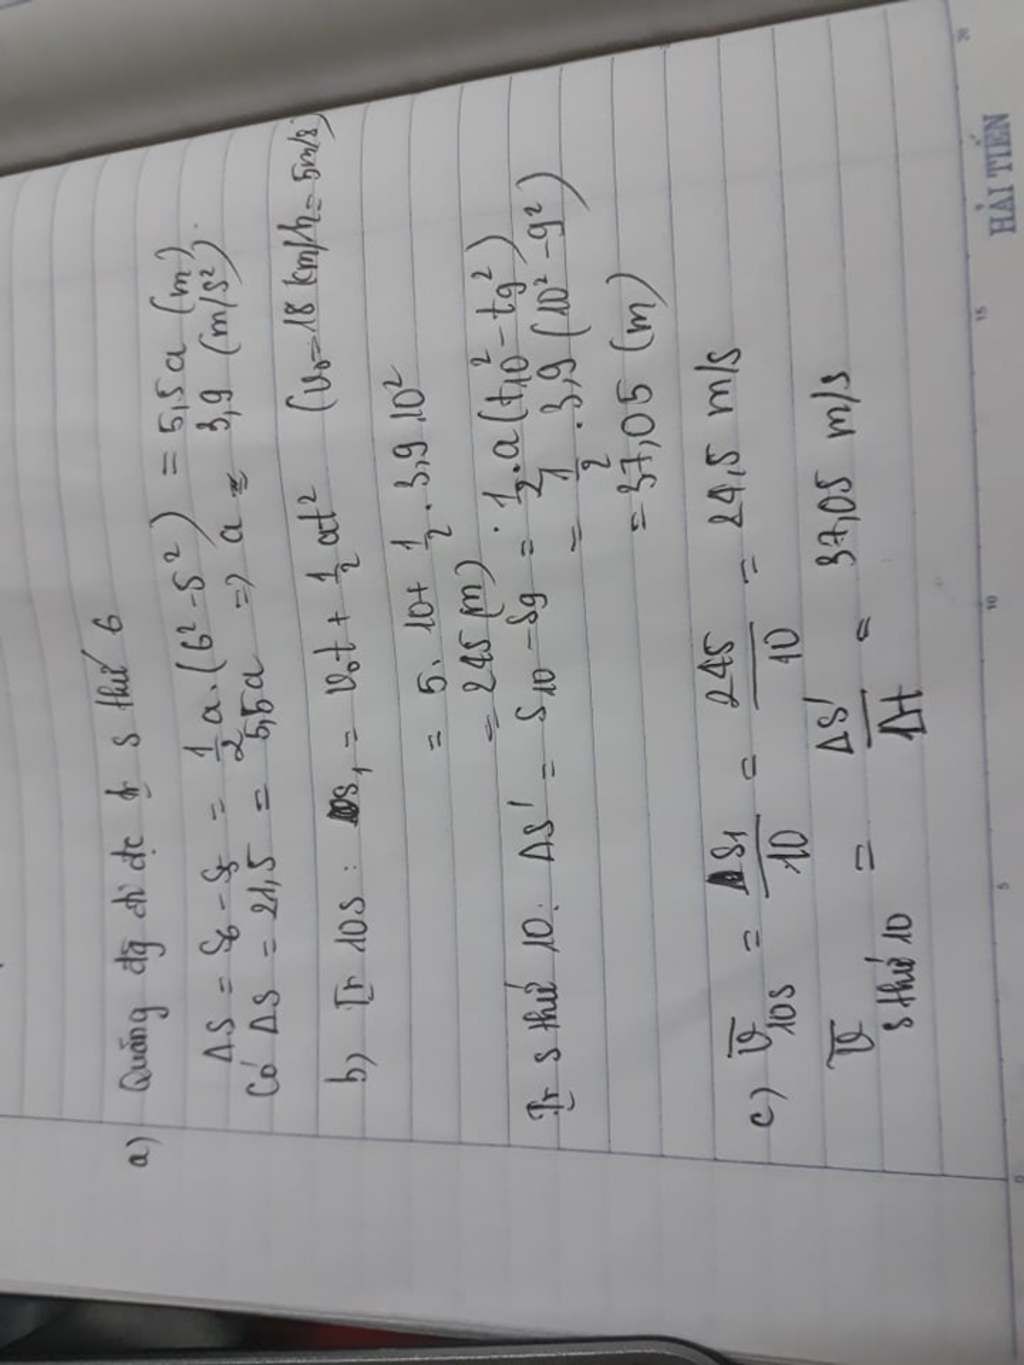 a) Quãng đg đi đc tr s thứ 6
ΔS = S₆ - S₅ = 1/2 a.(6² - 5²) = 5,5a (m)
Có ΔS = 21,5 = 5,5a => a ≈ 3,9 (m/s²).
b) Tr 10s : s₁ = v₀t + 1/2 at² (v₀ = 18 km/h = 5m/s)
= 5. 10 + 1/2 . 3,9.10²
= 245 (m)
Tr s thứ 10: ΔS' = S₁₀ - S₉ = 1/2 . a (t₁₀² - t₉²)
= 1/2 . 3,9 (10² - 9²)
= 37,05 (m)
c) v̅ 10s = ΔS₁/10 = 245/10 = 24,5 m/s
v̅ s thứ 10 = ΔS'/Δt = 37,05 m/s
HẢI TIẾN
0 5 10 15 20